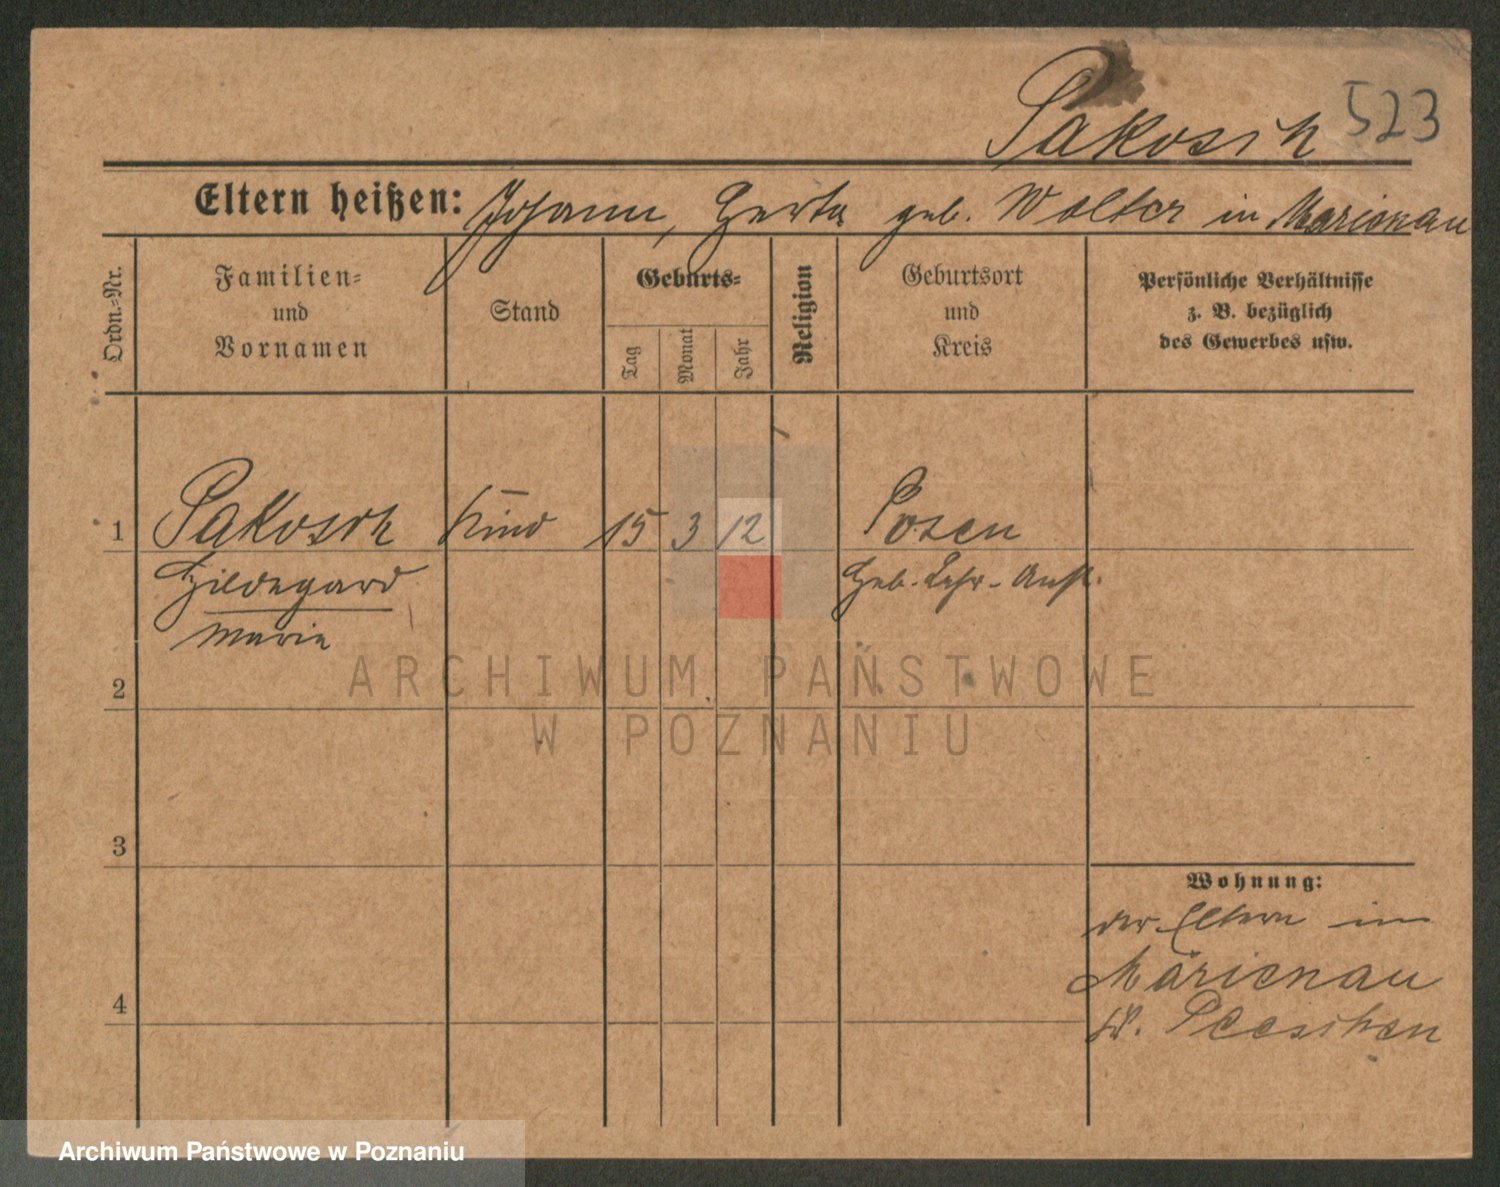 Pakosch 523
Eltern heißen: Johann, Herta geb. Wolter in Marienau
Ordn.=Nr.
Familien=
und
Vornamen
Stand
Geburts=
Tag
Monat
Jahr
Religion
Geburtsort
und
Kreis
Persönliche Verhältnisse
z. B. bezüglich
des Gewerbes usw.
1 Pakosch Kind 15 3 12 Posen
Hildegard Heb.-Lehr-Anst.
Maria
2
ARCHIWUM PAŃSTWOWE
W POZNANIU
3
Wohnung:
der Eltern in
Marienau
Kr. Pleschen
4
Archiwum Państwowe w Poznaniu